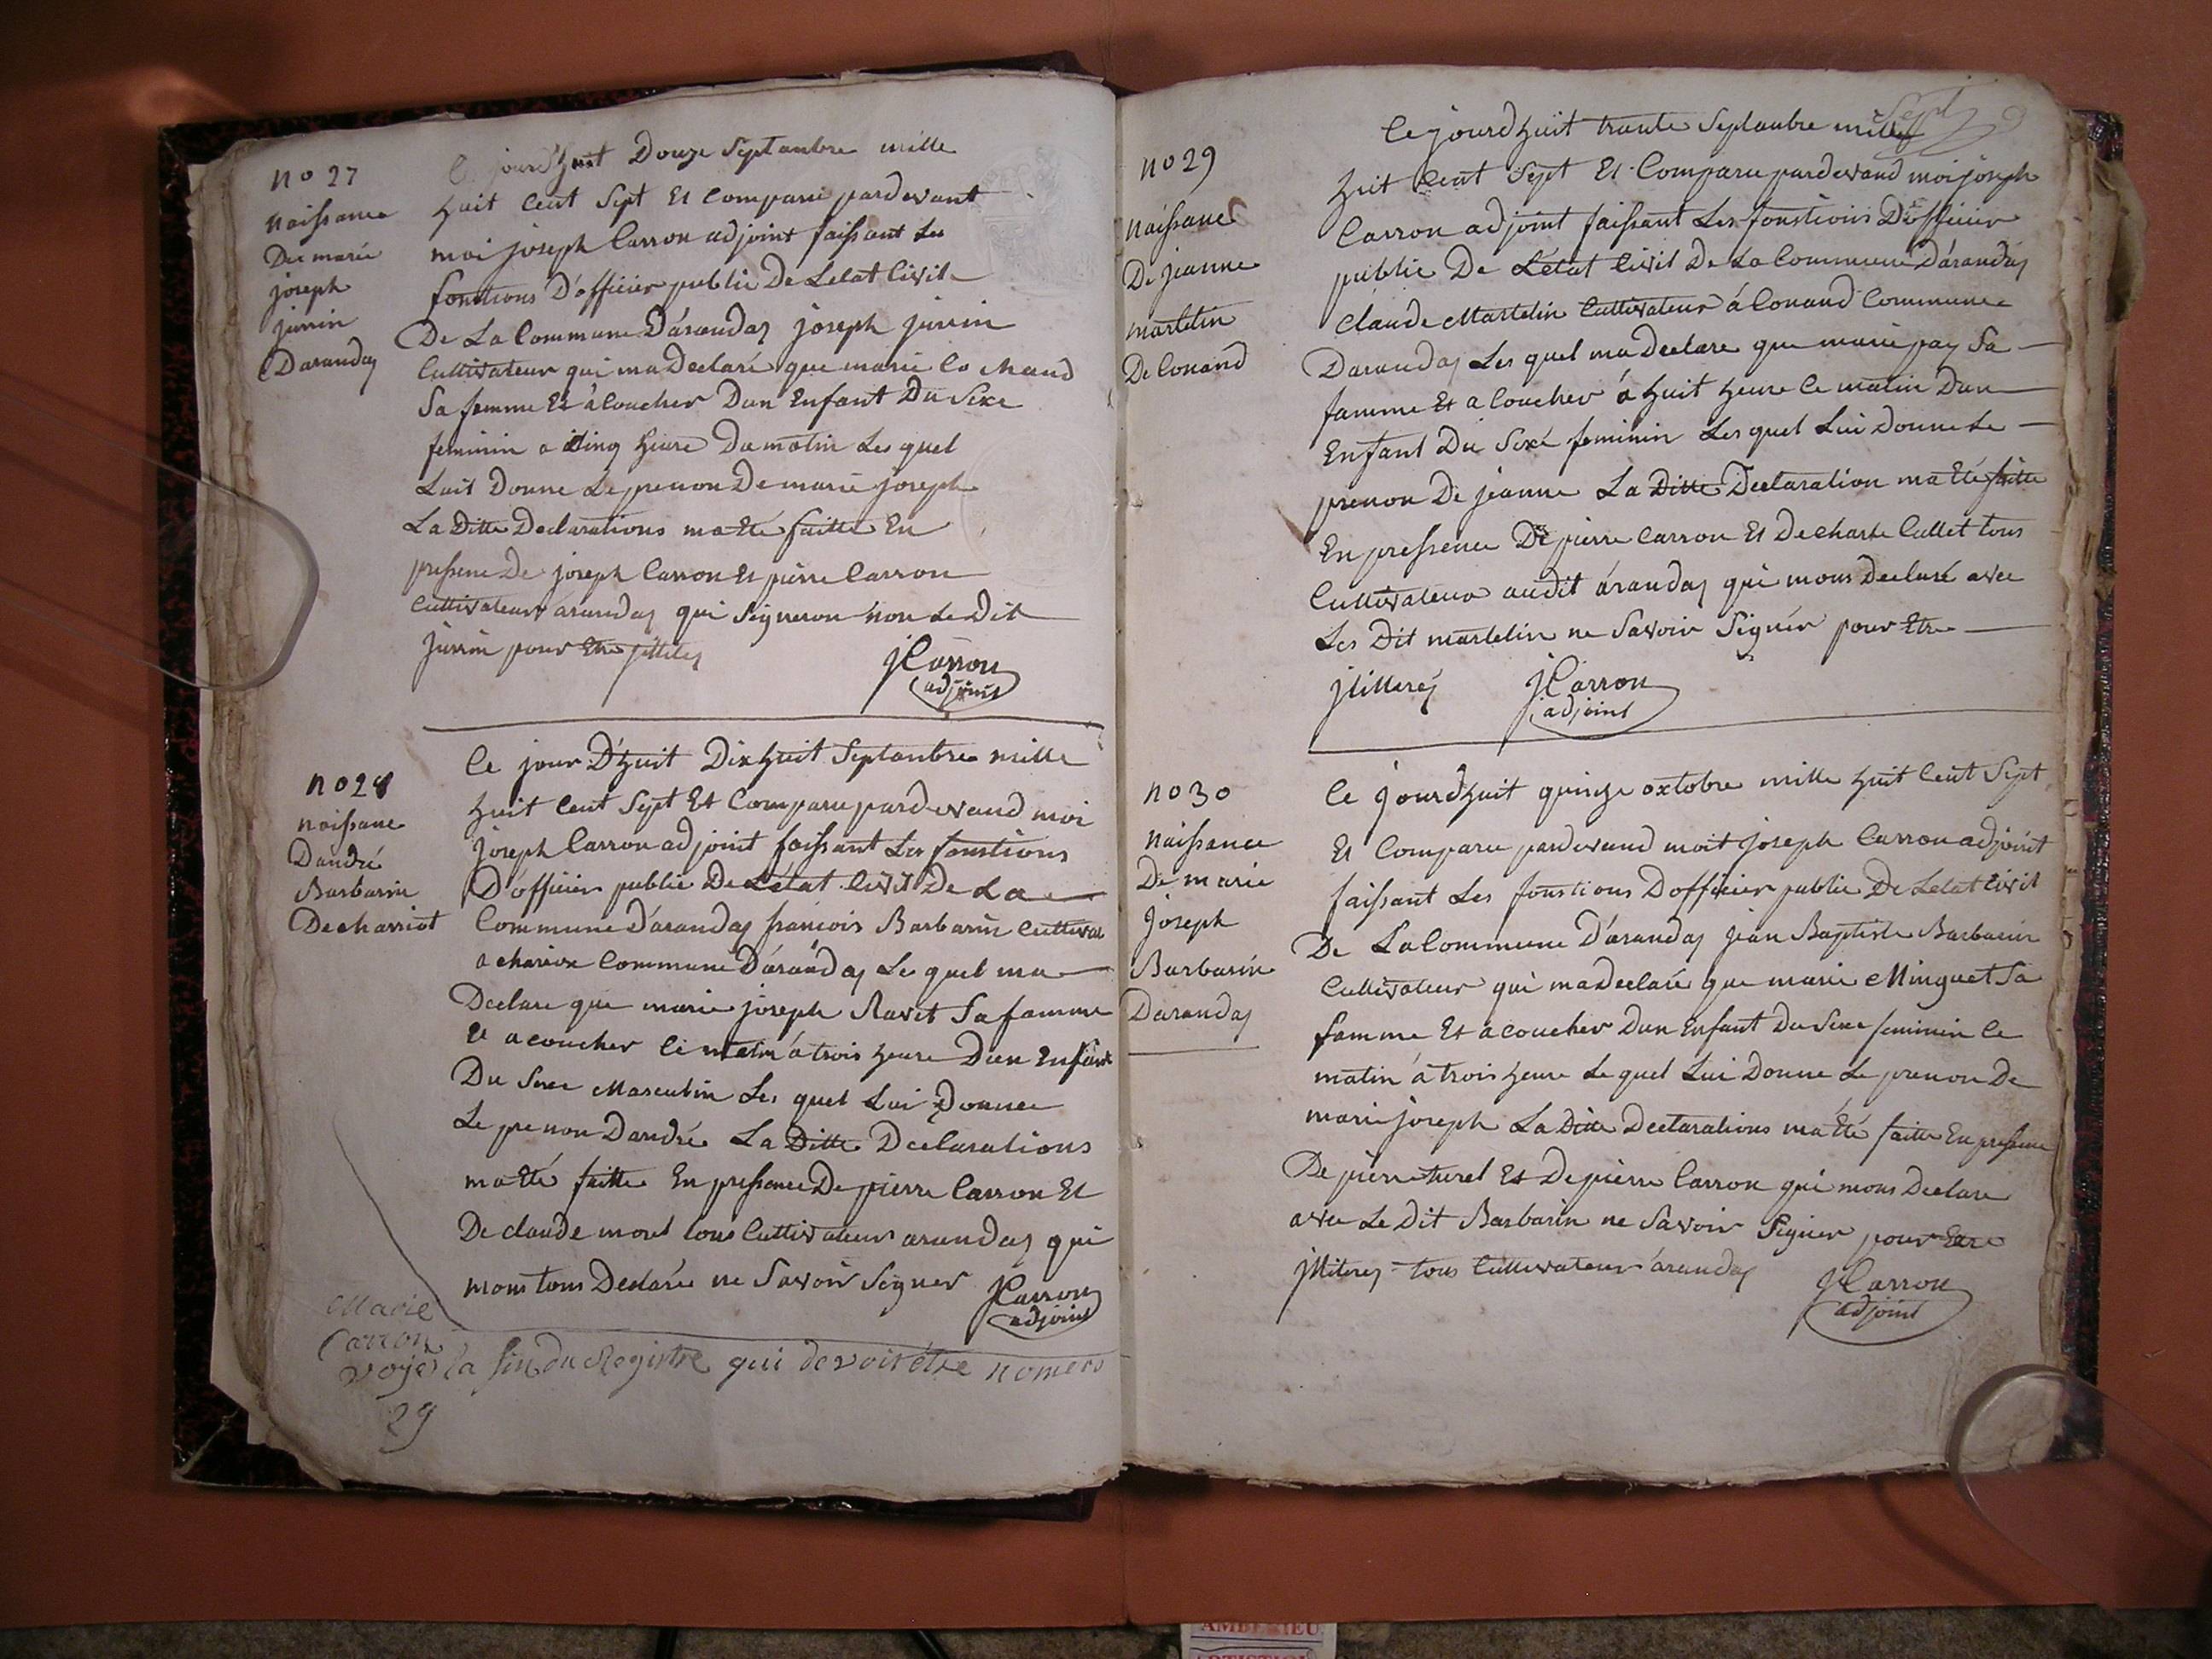 no 27
naissance
De marie
joseph
jurrin
Darandas
Ce jourdhuit Douze Septanbre mille
huit Cent Sept Et Comparu pardevant
moi joseph Carron adjoint faissant Les
fonstions D'officier public De Letat Civil
De La Commune D'arandas joseph jurrin
Cultivateur qui ma Declaré que marie Co chand
Sa femme Et àCoucher Dun Enfant Du Sexe
feminin a Cinq heure Du matin Les quel
Luit Donne Le prenon De marie joseph
La Ditte Declarations ma Eté faitte En
pressence De joseph Carron Et pierre Carron
Cultivateur arandas qui Signeron non Le Dit
jurrin pour Etre jllites
JCarron
adjoint
no 28
naissance
Dandré
Barbarin
De charriot
Ce jour D'huit Dix huit Septanbre mille
huit Cent Sept Et Comparu pardevand moi
joseph Carron adjoint faissant Les fonstions
D'officier public De Létat Civil De La
Commune D'arandas francois Barbarin Cultivat
a charix Commune D'arandas Le quel ma
Declare que marie joseph Ravet Sa famme
Et acoucher Ce matin à trois heure Dun Enfant
Du Sexe Masculin Les quel Lui Donne
Le prenon Dandré La Ditte Declarations
ma Eté faitte En pressence De pierre Carron Et
De claude morel tous Cultivateurs arandas qui
mons tous Declarée ne Savoir Signer
JCarron
adjoint
Marie
Carron
voyes la fin du Registre qui devoit être nomero
29
Sept 9
no 29
naissance
De jeanne
martelin
De Conand
Ce jourdhuit trante Septanbre mille
huit Cent Sept Et Comparu pardevand moi joseph
Carron adjoint faissant Les fonstions D'officier
public De Létat Civil De La Commune D'arandas
claude Martelin Cultivateur à Conand Commune
Darandas Les quel ma Declare que marie pay Sa
famme Et a Coucher à huit heure Ce matin Dun
Enfant Du Sexe feminin Les quel Lui Donne Le
prenon De jeanne La Ditte Declaration ma Eté faitte
En pressence De pierre Carron Et De charle Cullet tous
Cultivateur audit arandas qui mons Declaré avec
Les Dit martelin ne Savoir Signér pour Etre
jlitterés
JCarron
adjoint
no 30
naissance
De marie
joseph
Barbarin
Darandas
Ce jourdhuit quinze oxtobre mille huit Cent Sept
Et Comparu pardevand moit joseph Carron adjoint
faissant Les fonstions D'officier public De Letat Civil
De La Commune D'arandas jean Baptiste Barbarin
Cultivateur qui ma Declaré que marie Minguet Sa
famme Et acoucher Dun Enfant Du Sexe feminin Ce
matin à trois heure Le quel Lui Donne Le prenon De
marie joseph La Ditte Declarations ma Eté faitte En pressence
De pierre turel Et De pierre Carron qui mons Declare
avec Le Dit Barbarin ne Savoir Signer pour Etre
jlliteres tous Cultivateur àrandas
JCarron
adjoint